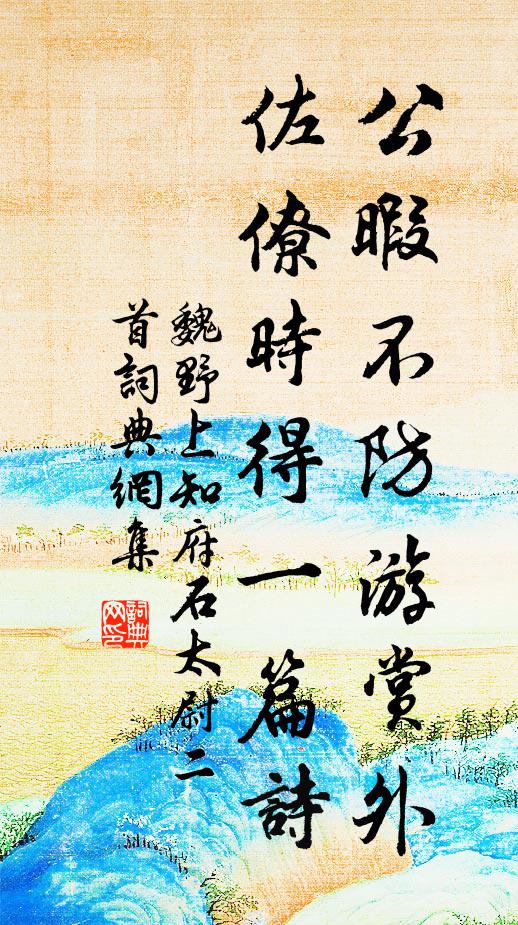 公暇不防游賞外
佐僚時得一篇詩
魏野上知府石太尉二
首詞典網集
詞典
网印